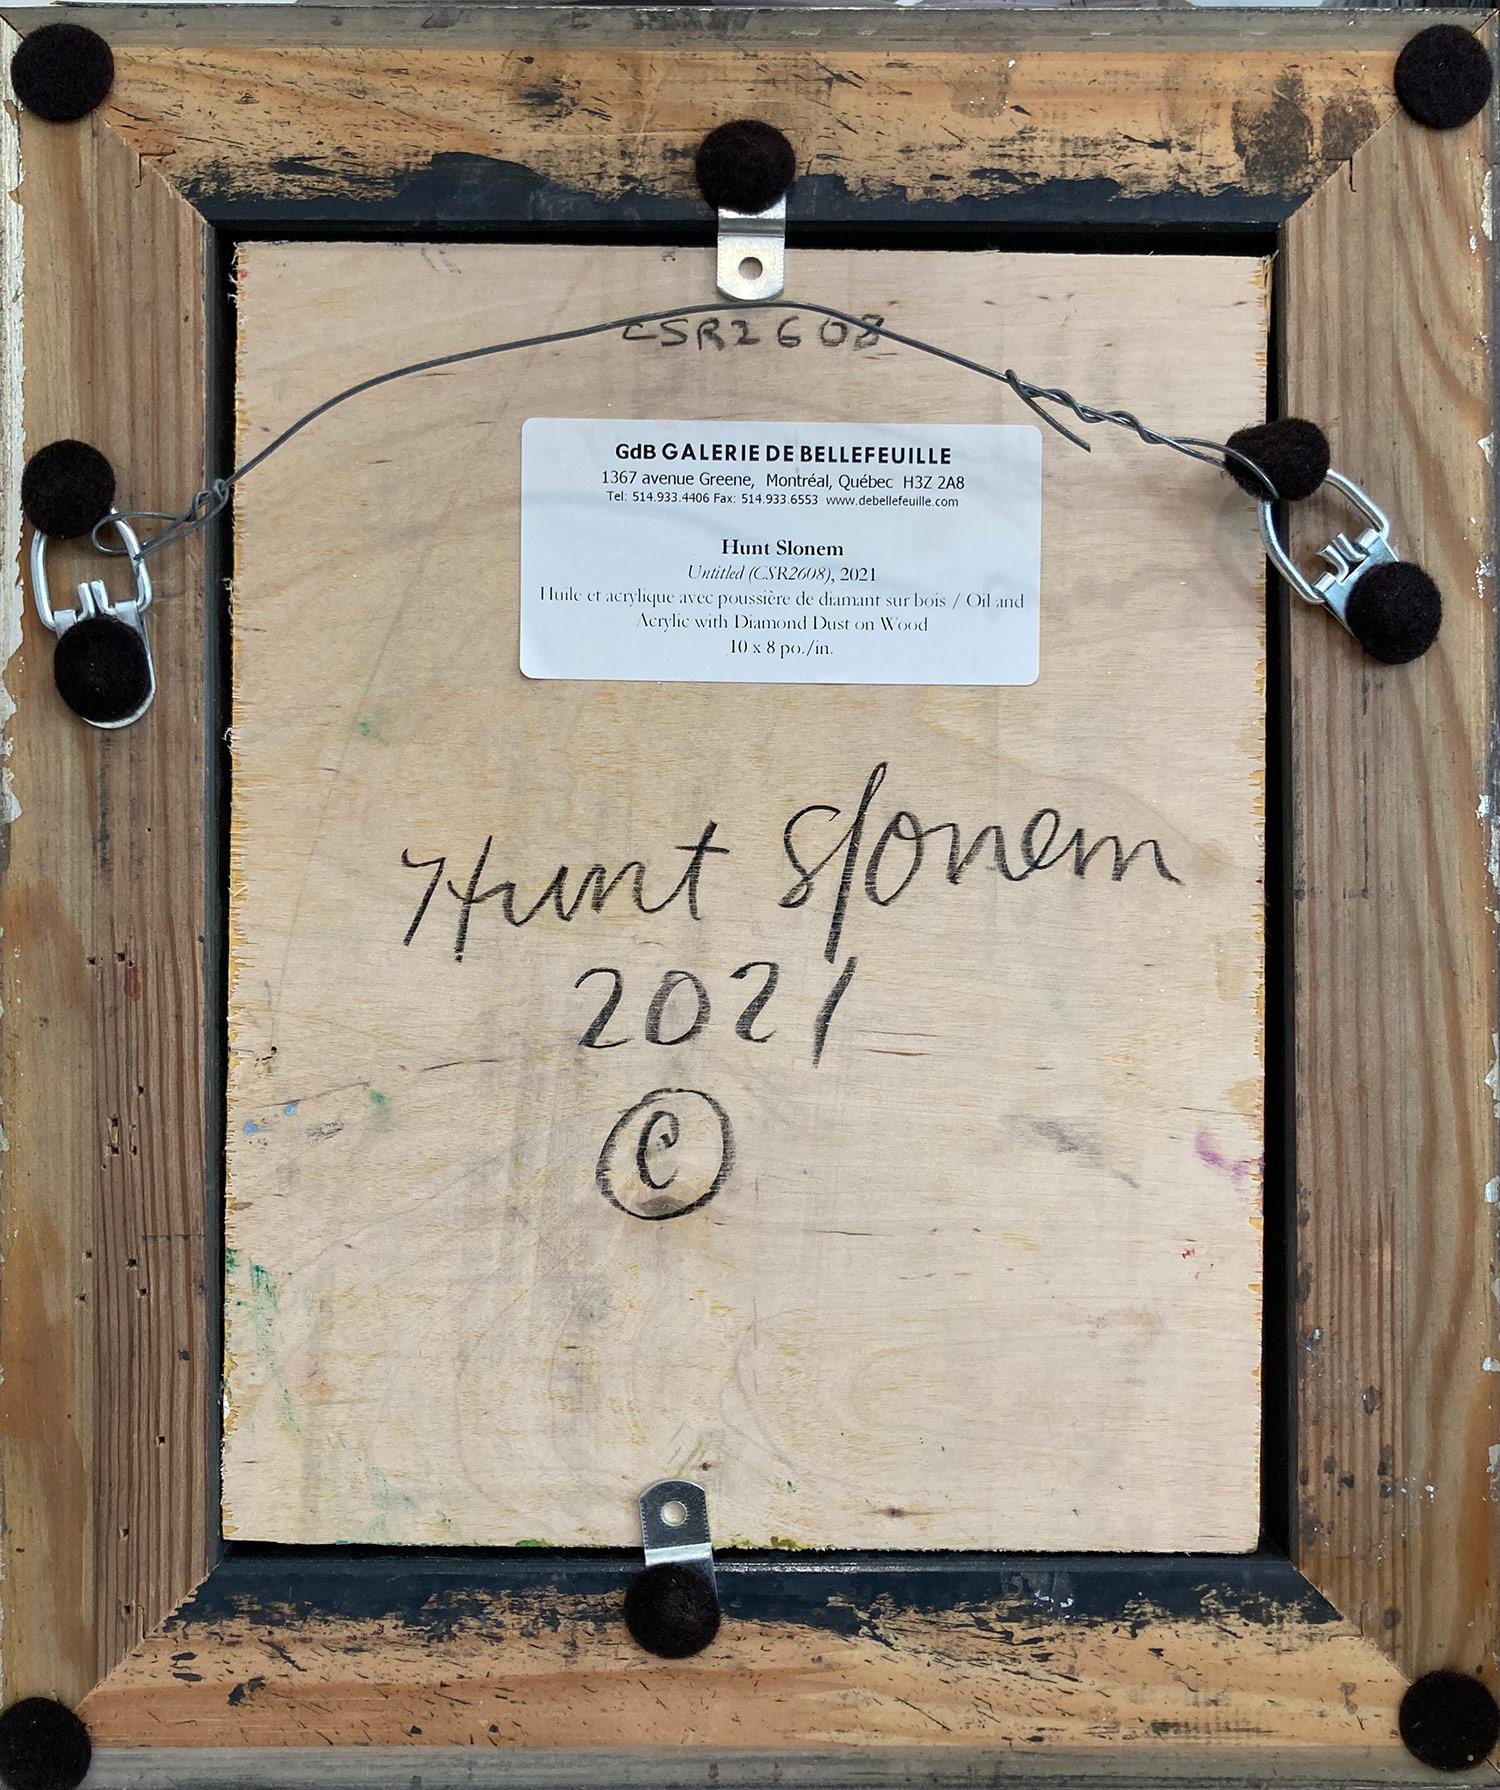 CSR2608
GdB GALERIE DE BELLEFEUILLE
1367 avenue Greene, Montréal, Québec H3Z 2A8
Tel: 514.933.4406 Fax: 514.933.6553 www.debellefeuille.com
Hunt Slonem
Untitled (CSR2608), 2021
Huile et acrylique avec poussière de diamant sur bois / Oil and
Acrylic with Diamond Dust on Wood
10 x 8 po./in.
Hunt Slonem
2021
©